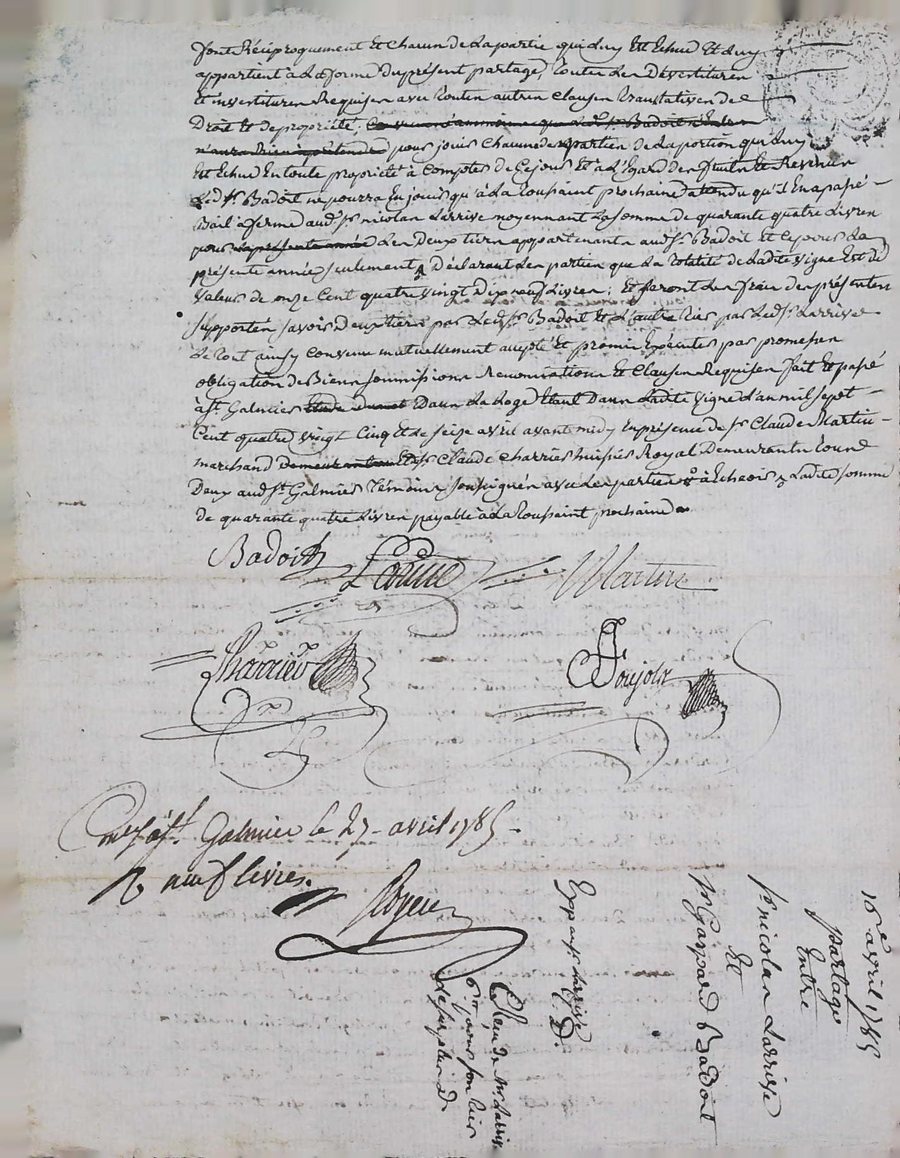 font Réciproquement Et chacun de la partie qui luy Est Echue Et luy
appartient à la forme du présent partage, touten Les Devestituren
et investituren Requisen avec touten autren clausen translativen de
Droit Et de propriété; pour jouir Chacune des partien de la portion qui luy
Est Echue En toute propriété à Compter de Ce jour Et à L'Egard des fruits Et Revenus
Led. Sr. Badoit ne pourra En jouir qu'à La toussaint prochaine attendu qu'il En a passé
Bail à ferme aud. Sr. nicolas Larrive moyennant La somme de quarante quatre Livren
pour la présente année Les Deux tiers appartenant aud. Sr. Badoit Et Ce pour La
présente année seulement, Déclarant Les partien que La totalité de Ladite vigne Est de
valeur de onze Cent quatre vingt Dix neuf Livren; Et seront Les frais des présenten
supportés savoir Deux tiers par Led. Sr. Badoit Et L'autre tiers par Led. Sr. Larrive
Le tout ainsy Convenu mutuellement accepté Et promis Exécuter par promessen
obligation de Biens soumissions Renonciations Et Clausen Requisen fait Et passé
à St. Galmier Dans La Loge Etant Dans Ladite vigne L'an mil sept
Cent quatre vingt Cinq Et Le seize avril avant midy En présence de Sr. Claude Martin
marchand Et Sr. Claude Charrier huissier Royal Demeurant tous
Deux aud. St. Galmier témoins soussignés avec Les partien à Echoir Ladite somme
de quarante quatre Livren payable à La toussaint prochaine
Badoit Larrive Martin
Charrier Poujolx
à St. Galmier le 27 avril 1785
R neuf livres.
Royer
16e avril 1785
partage
Entre
Sr. nicolas Larrive
Et
Sr. Gaspard Badoit
Exp. au Sr. Larrive
Reçu de Mr. Larrive
pour son tiers